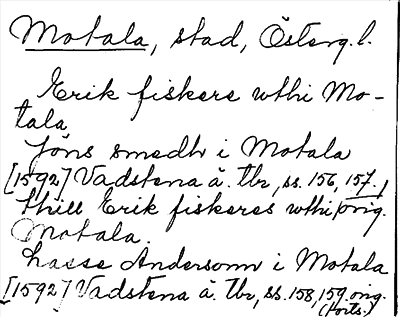 Motala, stad, Österg.l.
Erik fiskere wthi Mo-
tala
Jöns smedh i Motala
[1592] Vadstena ä. tbr, ss. 156, 157.
thill Erik fiskeres wthi orig.
Motala.
Lasse Andersonn i Motala
[1592] Vadstena ä. tbr, ss. 158, 159 orig.
(Forts.)